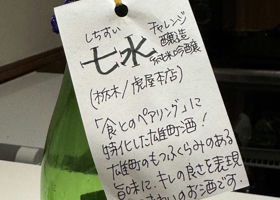 しちすい
七水
チャレンジ
醸造
純米吟醸
(栃木/虎屋本店)
「食とのペアリング」に
特化した雄町酒!
雄町のもつふくらみのある
旨味に、キレの良さを表現
のお酒です.